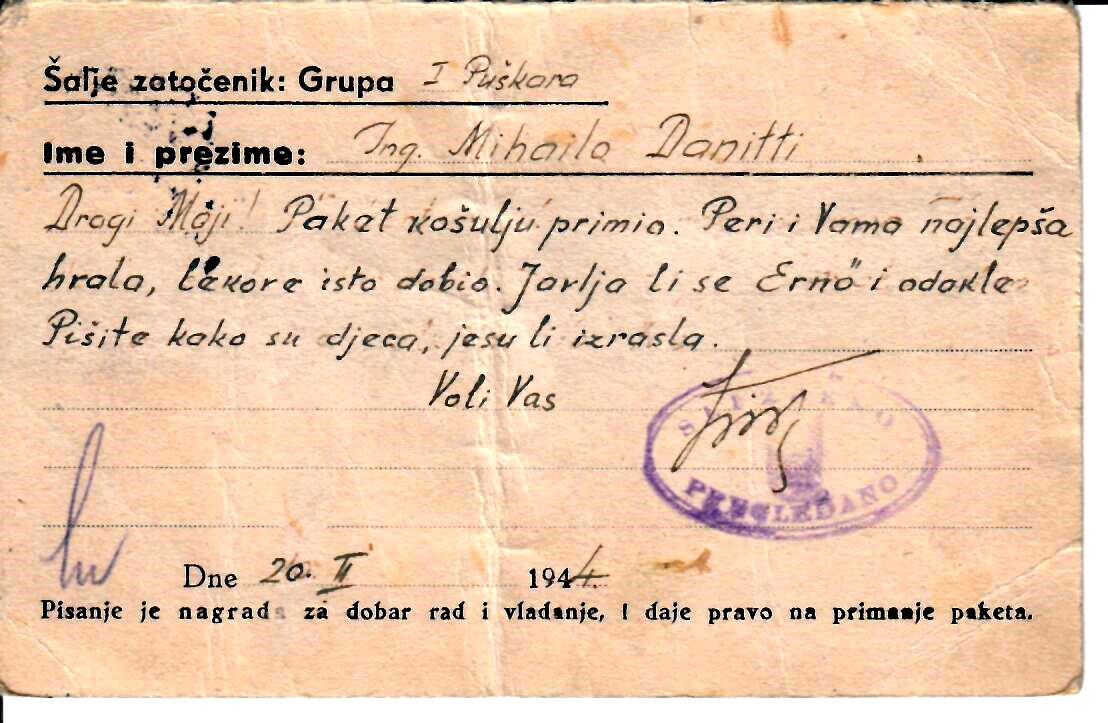 Šalje zatočenik: Grupa I Puškara
Ime i prezime: Ing. Mihailo Danitti
Dragi Moji! Paket košulju primio. Peri i Vama najlepša
hvala, lekove isto dobio. Javlja li se Ernö i odakle
Pišite kako su djeca, jesu li izrasla.
Voli Vas
PREGLEDANO
Dne 20. II 1944.
Pisanje je nagrada za dobar rad i vladanje, i daje pravo na primanje paketa.